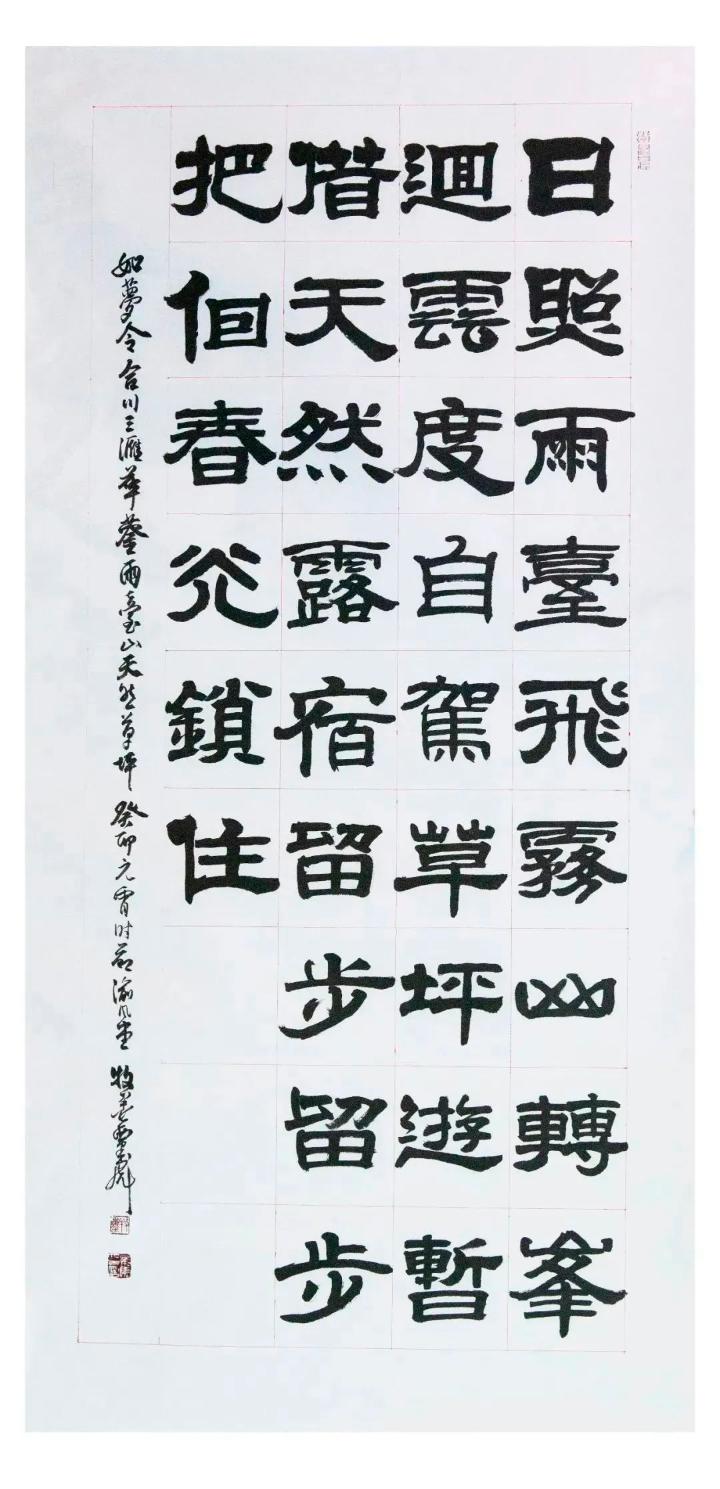 日照雨臺飛霧山轉峯
迴雲度自駕草坪遊暫
借天然露宿留步留步
把佪春光鎖住
如夢令 合川三滙華蓥雨臺山天然草坪 癸卯元宵时节渝風堂 牧墨